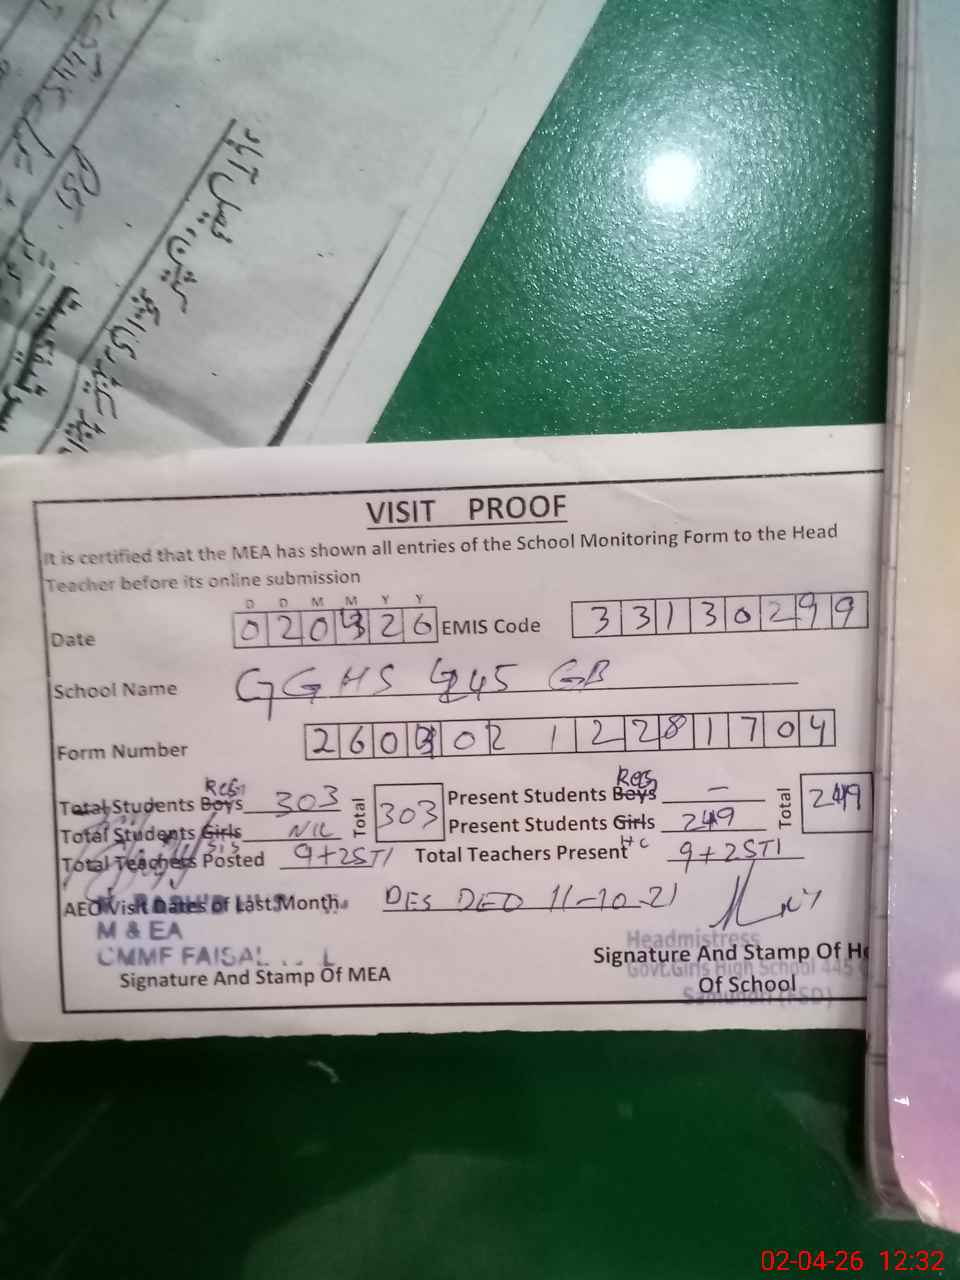 فیصل آباد
VISIT PROOF
It is certified that the MEA has shown all entries of the School Monitoring Form to the Head
Teacher before its online submission
D D M M Y Y
Date 020426 EMIS Code 33130299
School Name GGHS 445 GB
Form Number 26040212281704
Total Students Boys Reg 303 Total 303 Present Students Boys Reg — Total 249
Total Students Girls NIL Present Students Girls 249
Total Teachers Posted 9+2STI Total Teachers Present 9+2STI
AEO Visit Dates of Last Month. DES DEO 11-10-21
M & EA
CMMF FAISAL L
Signature And Stamp Of MEA
Headmistress
Signature And Stamp Of He
Govt.Girls High School 445
Of School
Samundri (FSD)
02-04-26 12:32